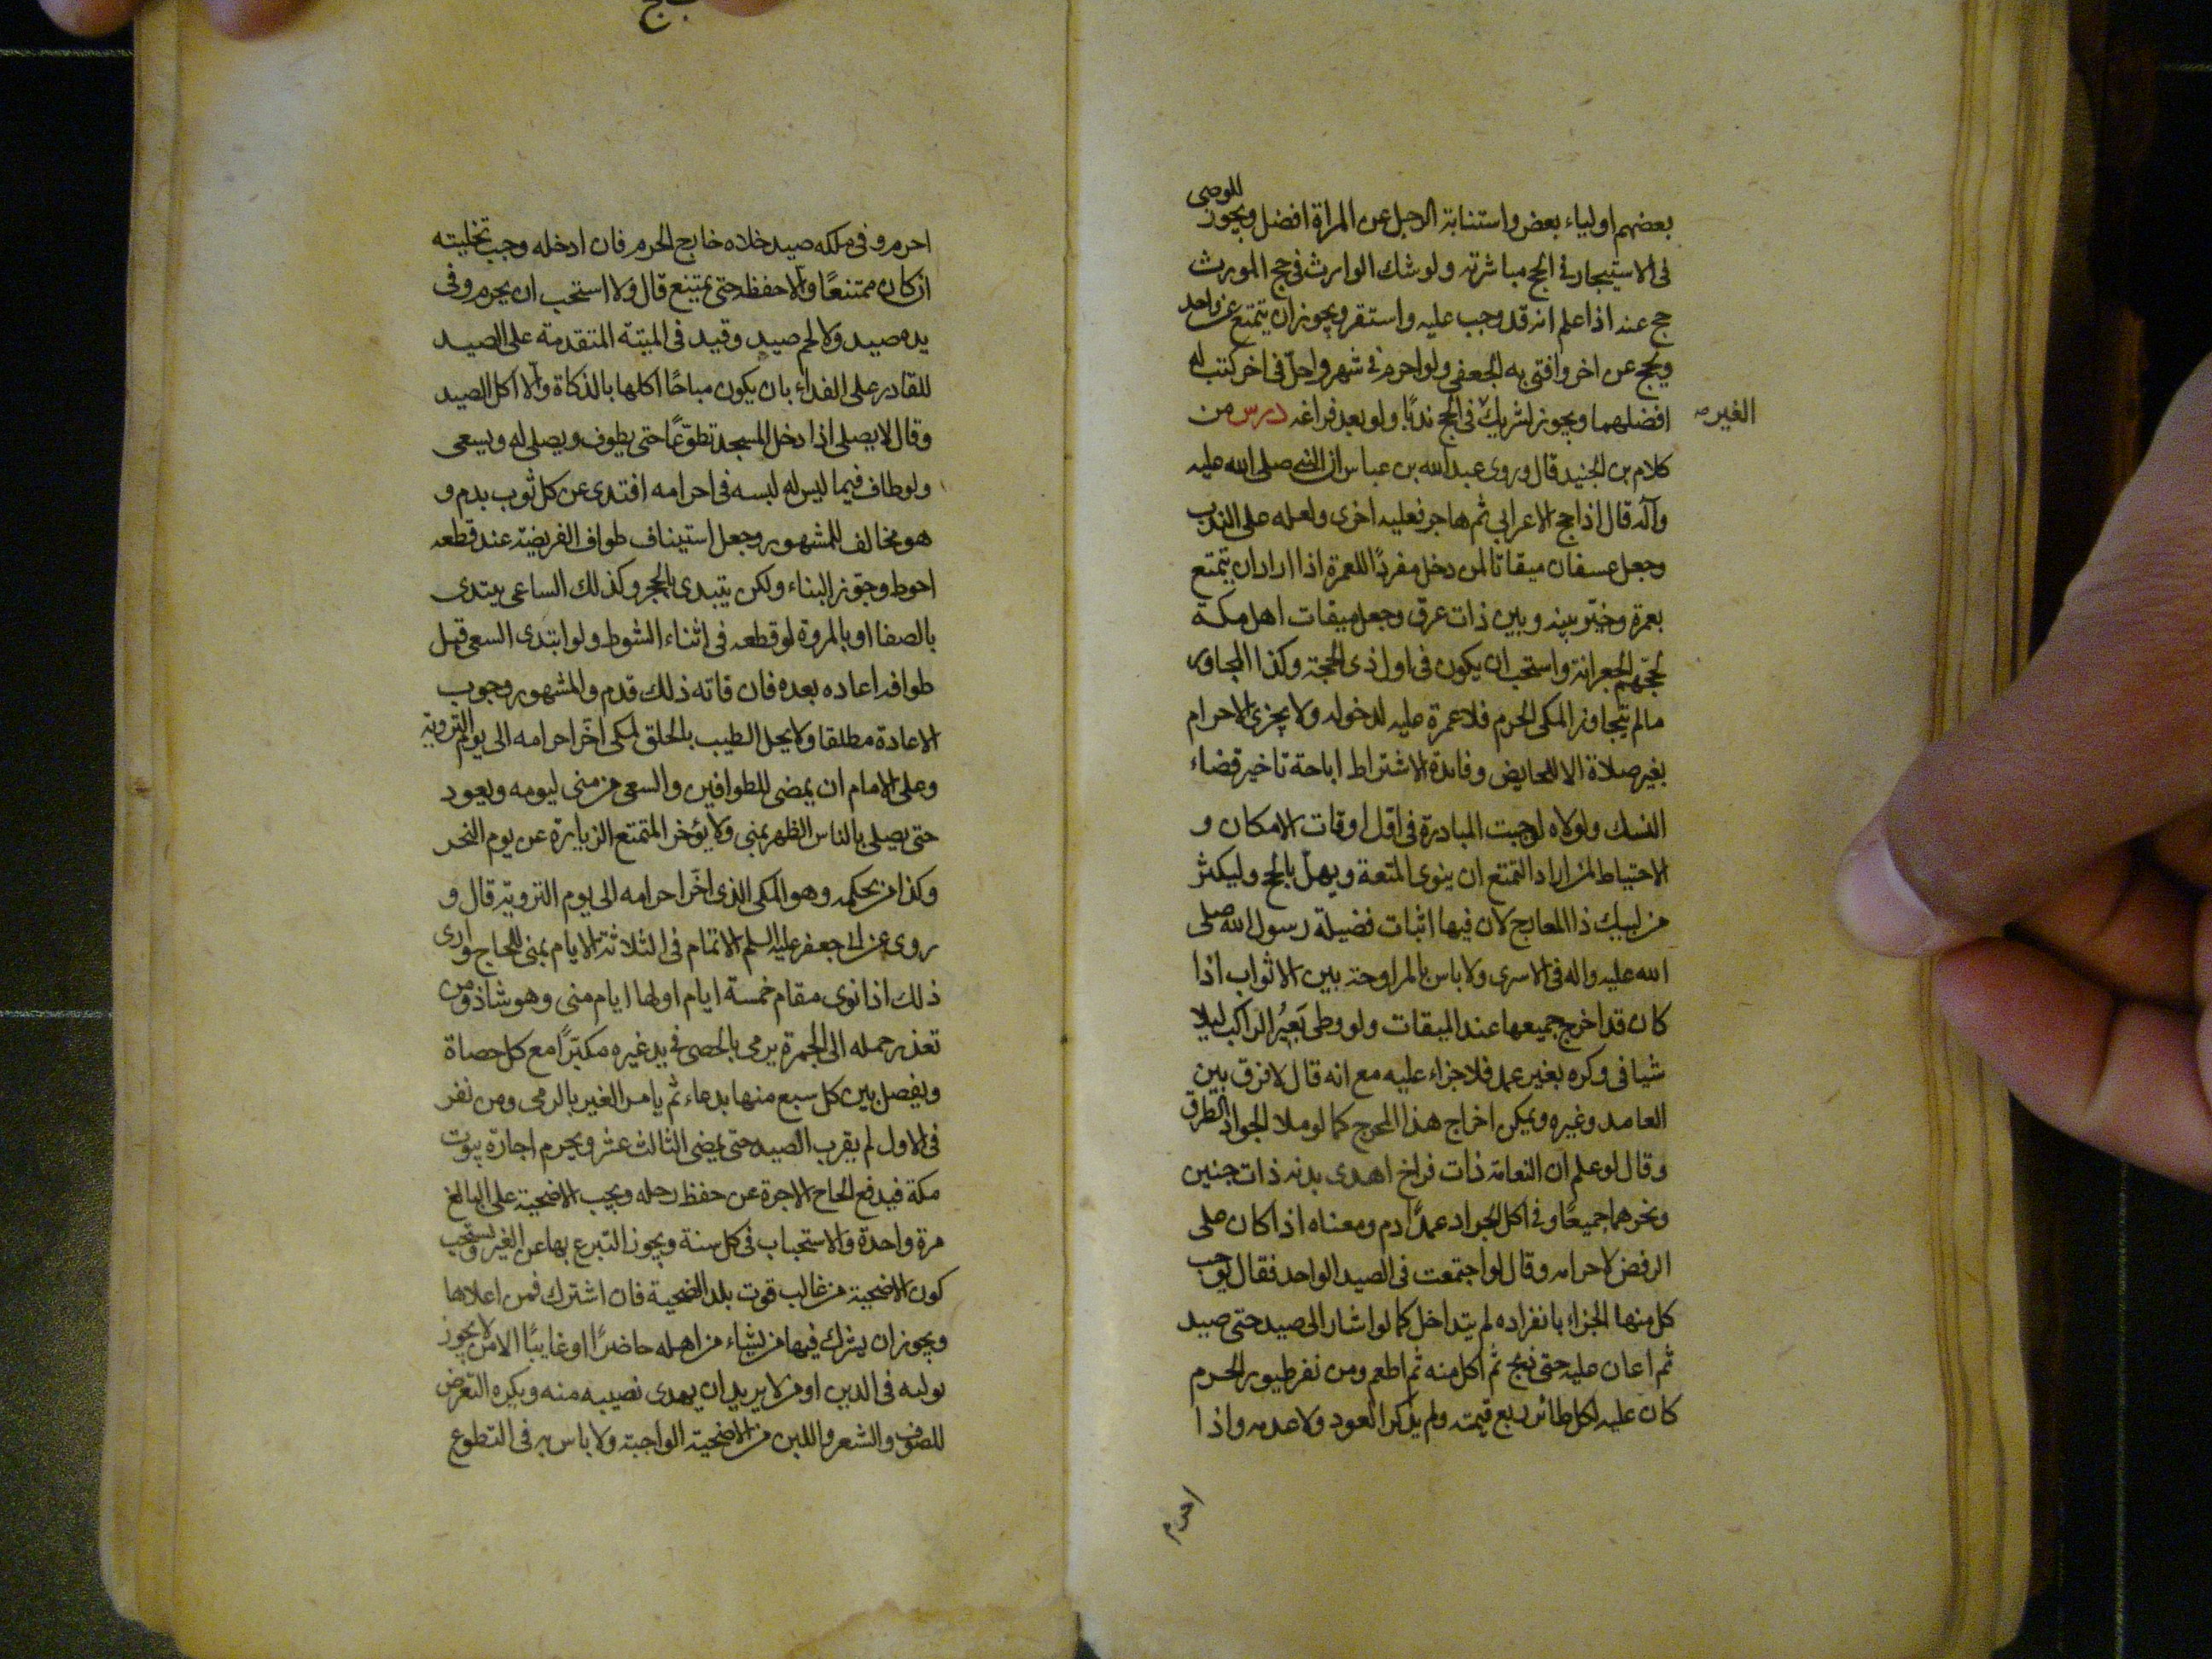 بعضهم اولياء بعض واستنابة الرجل عن المراة افضل ويجوز للوصى
فى الاستيجار فى الحج مباشرته ولو شك الوارث فى حج المورث
حج عنه اذا علم انه قد وجب عليه واستقر ويجوز ان يتمتع عن واحد
ويحج عن اخر وافتى به الجعفى ولو احرم فى شهر واحل فى اخر كتب له
افضلهما ويجوز تشريك فى الحج ندبا ولو بعد فراغه درس من
الغير صه
كلام بن الجنيد قال وروى عبد الله بن عباس ان النبى صلى الله عليه
وآله قال اذا حج الاعرابى ثم هاجر فعليه اخرى ولعله على الندب
وجعل عسفان ميقاتا لمن دخل مفردًا للعمرة اذا اراد ان يتمتع
بعمرة وخيّر بينه وبين ذات عرق وجعل ميقات اهل مكة
لحجّهم الجعرانة واستحب ان يكون فى اول ذى الحجة وكذا المجاور
مالم يتجاوز المكى الحرم فلا عمرة عليه لدخوله ولا يجزى الاحرام
بغير صلاة الا للحايض وفائدة الاشتراط اباحة تاخير قضاء
النسك ولولاه لوجبت المبادرة فى اقل اوقات الامكان و
الاحتياط لمن اراد التمتع ان ينوى المتعة ويهلّ بالحج وليكثر
من لبيك ذا المعارج لان فيها اثبات فضيلة رسول الله صلى
الله عليه واله فى الاسرى ولا باس بالمراوحة بين الاثواب اذا
كان قد اخرج جميعها عند الميقات ولو وطى بَعيُر الراكب ليلا
شيا فى وكره بغير عمد فلا جزاء عليه مع انه قال لا فرق بين
العامد وغيره ويمكن اخراج هذا المحرج كما لو ملا الجواد الطرق
وقال لو علم ان النعامة ذات فراخ اهدى بدنه ذات جنين
ونحرهما جميعًا وفى اكل الجراد عمدًا دم ومعناه اذا كان على
الرفض لاحرامه وقال لو اجتمعت فى الصيد الواحد فقال يوجب
كل منها الجزاء بانفراده لم يتداخل كما لو اشار الى صيد حتى صيد
ثم اعان عليه حتى ذبح ثم اكل منه ثم اطعم ومن نفر طيور الحرم
كان عليه لكل طائر ربع قيمته ولم يذكر العود ولا عدمه واذا
احرم
احرم وفى ملكه صيد خلاه خارج الحرم فان ادخله وجب تخليته
ان كان ممتنعًا والا حفظه حتى يمتنع قال ولا استحب ان يحرم وفى
يده صيد ولا لحم صيد وقيد فى الميتة المتقدمة على الصيد
للقادر على الفداء بان يكون مباحًا اكلها بالذكاة والا اكل الصيد
وقال لا يصلى اذا دخل المسجد تطوّعًا حتى يطوف ويصلى له ويسعى
ولو طاف فيما ليس له لبسه فى احرامه افتدى عن كل ثوب بدم و
هو مخالف للمشهور وجعل استيناف طواف الفريضة عند قطعه
احوط وجوّز البناء ولكن يبتدى بالحجر وكذلك الساعى يبتدى
بالصفا او بالمروة لو قطعه فى اثناء الشوط ولو ابتدى السعى قبل
طوافه اعاده بعده فان فاته ذلك قدم والمشهور وجوب
الاعادة مطلقا ولا يحل الطيب بالحلق لمكى اخّر احرامه الى يوم التروية
وعلى الامام ان يمضى للطوافين والسعى من منى ليومه ويعود
حتى يصلى بالناس الظهر بمنى ولا يؤخر المتمتع الزيارة عن يوم النحر
وكذا من بحكمه وهو المكى الذى اخّر احرامه الى يوم التروية قال و
روى عن ابى جعفر عليه السلم الاتمام فى الثلاثة الايام بمنى للحاج وارى
ذلك اذا نوى مقام خمسة ايام اولها ايام منى وهو شاذ ومن
تعذر حمله الى الجمرة يرمى بالحصى فى يد غيره مكبّرًا مع كل حصاة
ويفصل بين كل سبع منها بدعاء ثم يامر الغير بالرمى ومن نفر
فى الاول لم يقرب الصيد حتى يمضى الثالث عشر ويحرم اجارة بيوت
مكة فيدفع الحاج الاجرة عن حفظ رحله ويجب الاضحية على البالغ
مرة واحدة والاستحباب فى كل سنة ويجوز التبرع بها عن الغير ويستحب
كون الاضحية من غالب قوت بلد الضحية فان اشترك فمن اعلاها
ويجوز ان يشرك فيها من يشاء من اهله حاضرًا او غايبًا الا من لا يجوز
توليه فى الدين او من لا يريد ان يهدى نصيبه منه ويكره التعرض
للصوف والشعر واللبن من الاضحية الواجبة ولا باس به فى التطوع